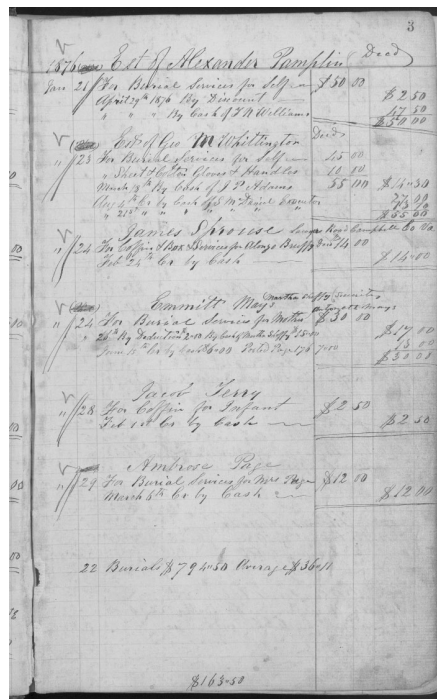 3
1876 Est of Alexander Pamplin Decd
Jan 21 For Burial Services for Self $50 00
April 29th 1876 By Discount $2 50
" " " By Cash of J N Williams 47 50
$50 00
Est of Geo M Whittington Decd
" 23 For Burial Services for Self 45 00
" Sheet & Cotton Gloves & Handles 10 00
March 8th By Cash of J D Adams 55 00 $14 50
Aug 4th Cr by Cash of
" 21st " " " " " "
$55 00
James Sprouse Campbell Co Va
" 24 For Coffin & Box & Services for 14 00
Feb 24th Cr by Cash $14 00
Emmitt Mays Martha
" 24 For Burial Services for Mother $30 00
" 26th By Deduction 2 00 By Cash of Martha 15 00 $17 00
June Cr by Cash 6 00 Posted Page 176 7 00 13 00
$30 00
Jacob Terry
" 28 For Coffin for Infant $2 50
Feb 1st Cr by Cash $2 50
Ambrose Page
" 29 For Burial Services for Mrs Page $12 00
March 6th Cr by Cash $12 00
22 Burials $794 50 Average $36 11
$163 50